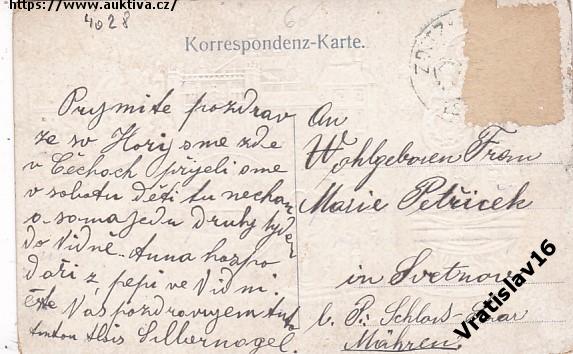 https://www.auktiva.cz/
4028
6
Korrespondenz-Karte.
Prijmite pozdrav
ze sv Horij sme zde
v Čechoch přijeli sme
v sobotu děti tu nechan
a soma jedu druhy tyden
do Vidně. Anna hospo
daři z pepi ve Vidni.
Vás pozdravujem
Anton Alois Silbernagel.
An
Wohlgeboren Frau
Marie Petřiček
in Svetnov
b. P: Schloss Saar
Mähren.
Vratislav16